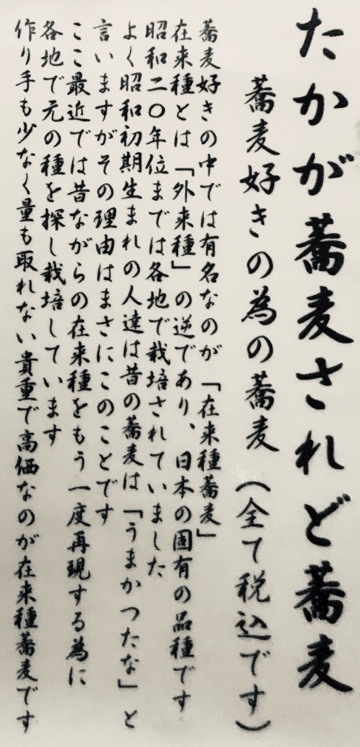 たかが蕎麦されど蕎麦
蕎麦好きの為の蕎麦（全て税込です）
蕎麦好きの中では有名なのが「在来種蕎麦」
在来種とは「外来種」の逆であり、日本の固有の品種です
昭和二〇年位までは各地で栽培されていました
よく昭和初期生まれの人達は昔の蕎麦は「うまかつたな」と
言いますがその理由はまさにこのことです
ここ最近では昔ながらの在来種をもう一度再現する為に
各地で元の種を探し栽培しています
作り手も少なく量も取れない貴重で高価なのが在来種蕎麦です